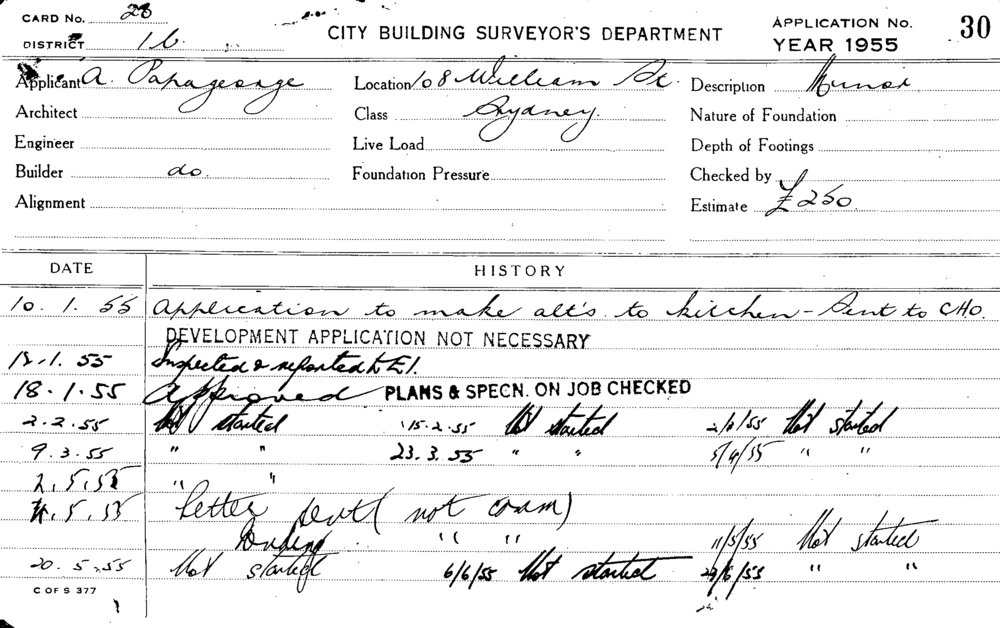 CARD No. 28
DISTRICT 1b.
CITY BUILDING SURVEYOR'S DEPARTMENT
APPLICATION No. 30
YEAR 1955
Applicant A. Papageorge Location 108 William St. Description Minor
Architect Class Sydney. Nature of Foundation
Engineer Live Load Depth of Footings
Builder do. Foundation Pressure Checked by
Alignment Estimate £250
DATE HISTORY
10. 1. 55 Application to make alt's. to kitchen - Sent to CHO.
DEVELOPMENT APPLICATION NOT NECESSARY
18.1.55 Inspected & reported to E1.
18.1.55 Approved PLANS & SPECN. ON JOB CHECKED
2.2.55 Not started 15.2.55 Not started /55 Not started
9.3.55 " " 23.3.55 " " 5/4/55 " "
2.5.55 " "
4.5.55 Letter sent (not comm)
" " 11/5/55 Not started
20.5.55 Not started 6/6/55 Not started /6/55 " "
C OF S 377